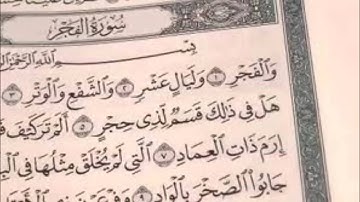 سُورَةُ الفَجْرِ
بِسْمِ اللَّهِ الرَّحْمَٰنِ
وَٱلْفَجْرِ ١ وَلَيَالٍ عَشْرٍ ٢ وَٱلشَّفْعِ وَٱلْوَتْرِ ٣
هَلْ فِى ذَٰلِكَ قَسَمٌ لِّذِى حِجْرٍ ٥ أَلَمْ تَرَ كَيْفَ فَ
إِرَمَ ذَاتِ ٱلْعِمَادِ ٧ ٱلَّتِى لَمْ يُخْلَقْ مِثْلُهَا فِى
جَابُوا۟ ٱلصَّخْرَ بِٱلْوَادِ ٩ وَفِرْعَوْنَ